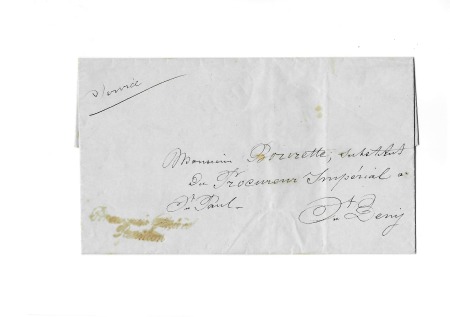 Service
Monsieur Pourette, Substitut
Du Procureur Impérial a
St Paul -
St Denis
Réunion